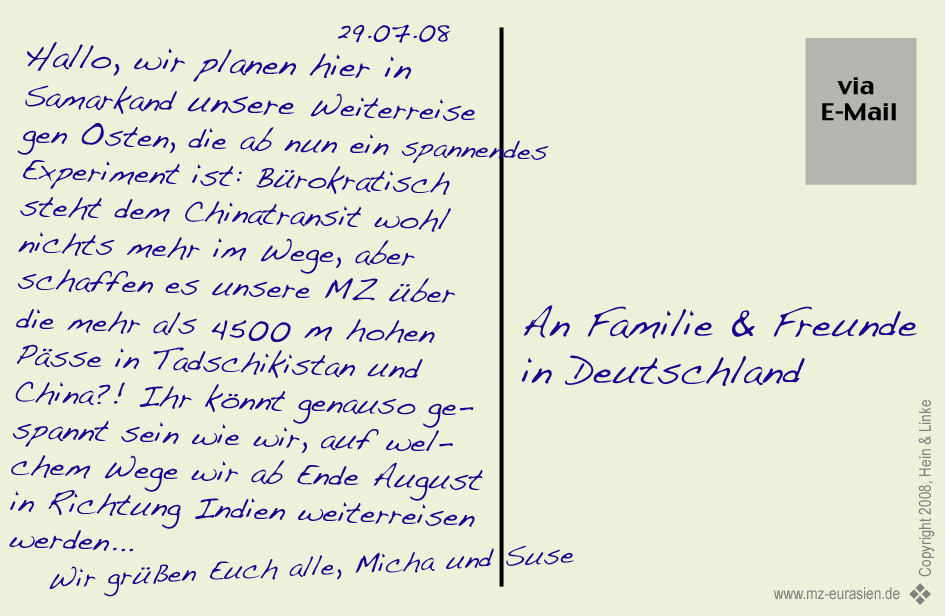 29.07.08
Hallo, wir planen hier in
Samarkand unsere Weiterreise
gen Osten, die ab nun ein spannendes
Experiment ist: Bürokratisch
steht dem Chinatransit wohl
nichts mehr im Wege, aber
schaffen es unsere MZ über
die mehr als 4500 m hohen
Pässe in Tadschikistan und
China?! Ihr könnt genauso ge-
spannt sein wie wir, auf wel-
chem Wege wir ab Ende August
in Richtung Indien weiterreisen
werden...
Wir grüßen Euch alle, Micha und Suse
via
E-Mail
An Familie & Freunde
in Deutschland
Copyright 2008, Hein & Linke
www.mz-eurasien.de